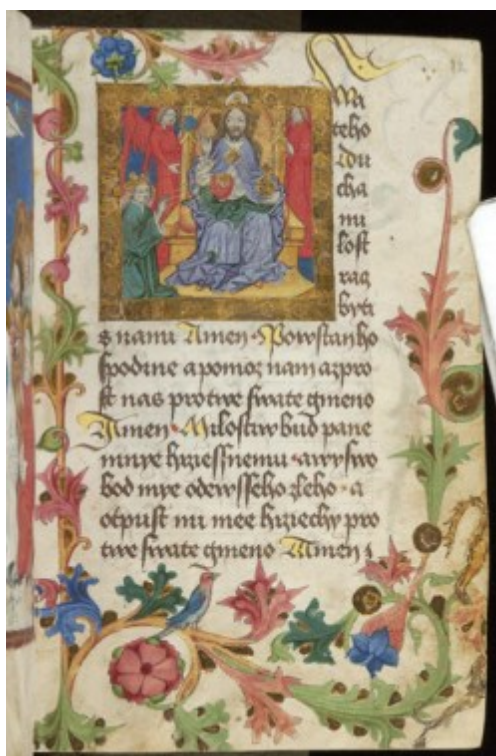 Swa
teho
Du
cha
mi
lost
racz
byti
s nami Amen · Powstan ho
spodine a pomoz nam a zpro
st nas pro twe swate gmeno
Amen · Milostiw bud pane
mnye hrziessnemu · a wyswo
bod mye ode wsseho zleho · a
otpust mi mee hrziechy pro
twe swate gmeno Amen